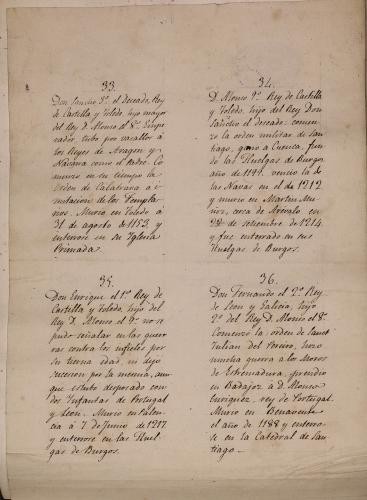 33.
Don Sancho 3º. el Deseado, Rey
de Castilla y Toledo, hijo mayor
del Rey D. Alonso el 8º. Empe
rador, tubo por vasallos á
los Reyes de Aragon y
Navarra como el Padre. Co
menzo en su tiempo la
Orden de Calatrava á i
mitacion de los Templa
rios. Murio en Toledo á
31 de agosto de 1153, y
enterrose en su Iglesia
Primada.
34.
D. Alonso 9º. Rey de Castilla
y Toledo, hijo del Rey Don
Sancho el deseado: comen
zo la orden militar de San
tiago, ganó a Cuenca, fun
do las Huelgas de Burgos
año de 1199. vencio la de
las Navas en el de 1212
y murio en Martin Mu
ñoz, cerca de Arevalo en
22 de setiembre de 1214
y fue enterrado en sus
Huelgas de Burgos.
35.
Don Enrique el 1º. Rey de
Castilla y Toledo, hijo del
Rey D. Alonso el 9º. no se
pudo señalar en las guer
ras contra los infieles por
su tierna edad, ni dejo
sucesion por la mesma, aun
que estubo desposado con
dos Infantas de Portugal
y Leon. Murio en Palen
cia á 7 de Junio de 1217
y enterrose en las Huel
gas de Burgos.
36.
Don Fernando el 2º. Rey
de Leon y Galicia, hijo
2º. del Rey D. Alonso el 8º.
Comenzó la orden de Sanct
Julian del Pereiro, hizo
mucha guerra a los Moros
de Estremadura, prendio
en Badajoz á D. Alonso
Enriquez, rey de Portugal.
Murio en Benavente
el año de 1188 y enterro
se en la Catedral de San
tiago.